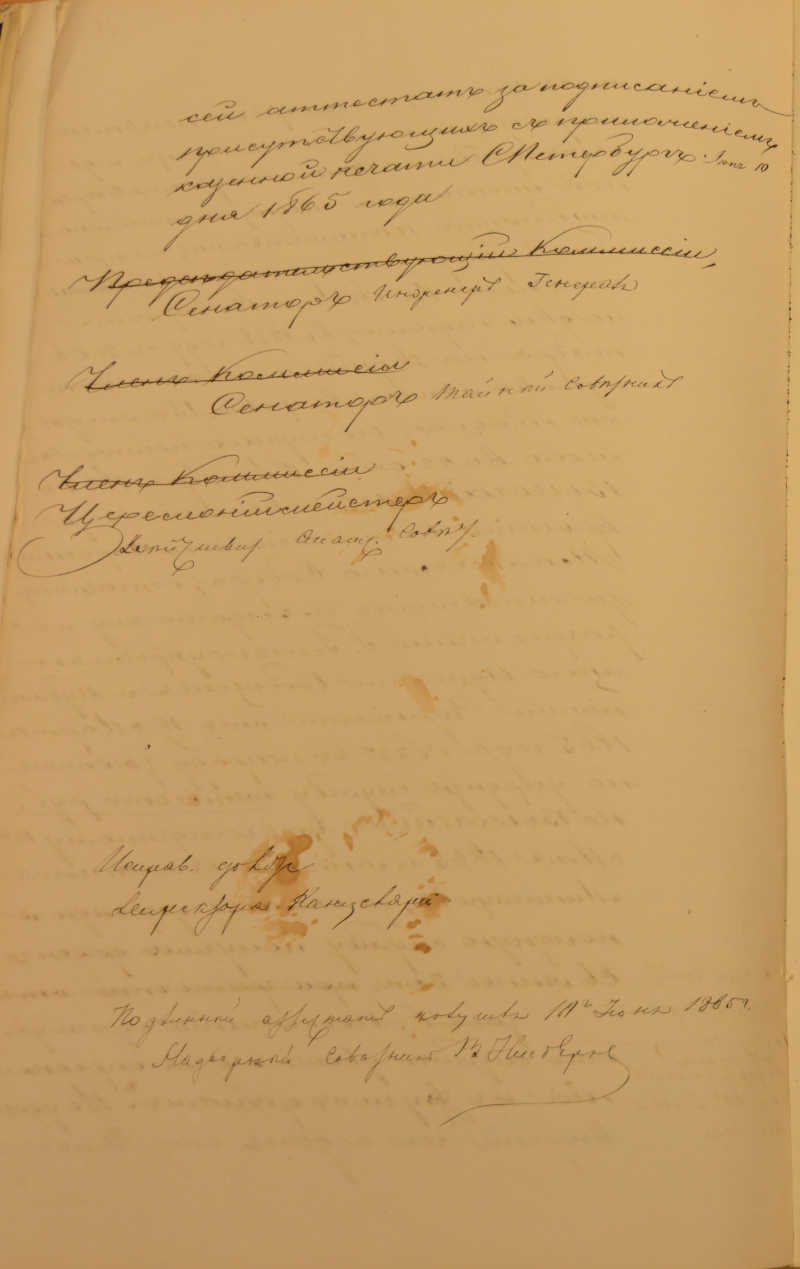 сей аттестатъ за подписаніемъ
присутствующихъ съ приложеніемъ
казенной печати СПетербургъ. Іюня 10
дня 1865 года
Председательствующій Коммиссіи
Сенаторъ Инженеръ Генералъ
Членъ Коммиссіи
Сенаторъ тайный совѣтникъ
Членъ Коммиссіи
Церемоніймейстеръ
Дѣйствит. Совѣт.
Исправ. долж.
Директора Канцеляріи
Подлинный аттестатъ получилъ 10 Іюня 1865 г.
Надворный Совѣтникъ В